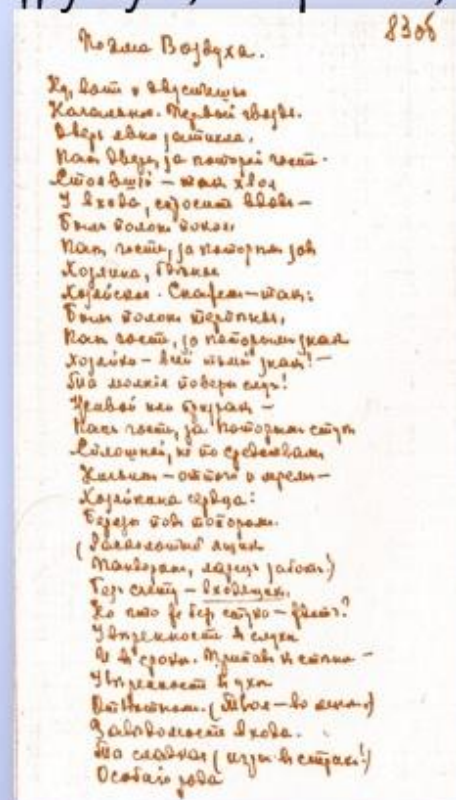 83об
Поэма Воздуха.
Ну, вот и двустишье
Начальное. Первый гвоздь.
Дверь явно затихла,
Как дверь, за которой гость.
Стоявший – так хвоя
У входа, спросите вдов –
Был полон покоя
Как гость, за которым зов
Хозяина, бденье
Хозяйское. Скажем – так:
Был полон терпенья,
Как гость, за которым знак
Хозяйки – всей тьмы знак! –
Та молния поверх слуг!
Живой или призрак –
Как гость, за которым стук
Сплошной, не по средствам
Ничьим – оттого и мрем –
Хозяйкина сердца:
Березы под топором.
(Расколотый ящик
Пандорин, ларец забот!)
Без счету – входящих.
Но кто же без стука – ждет?
Уверенность в слухе
И в сроке. Припав к стене –
Уверенность в ухе
Ответном. (Твоя – во мне.)
Заведомость входа.
Та сладкая (игры в страх!)
Особаго рода